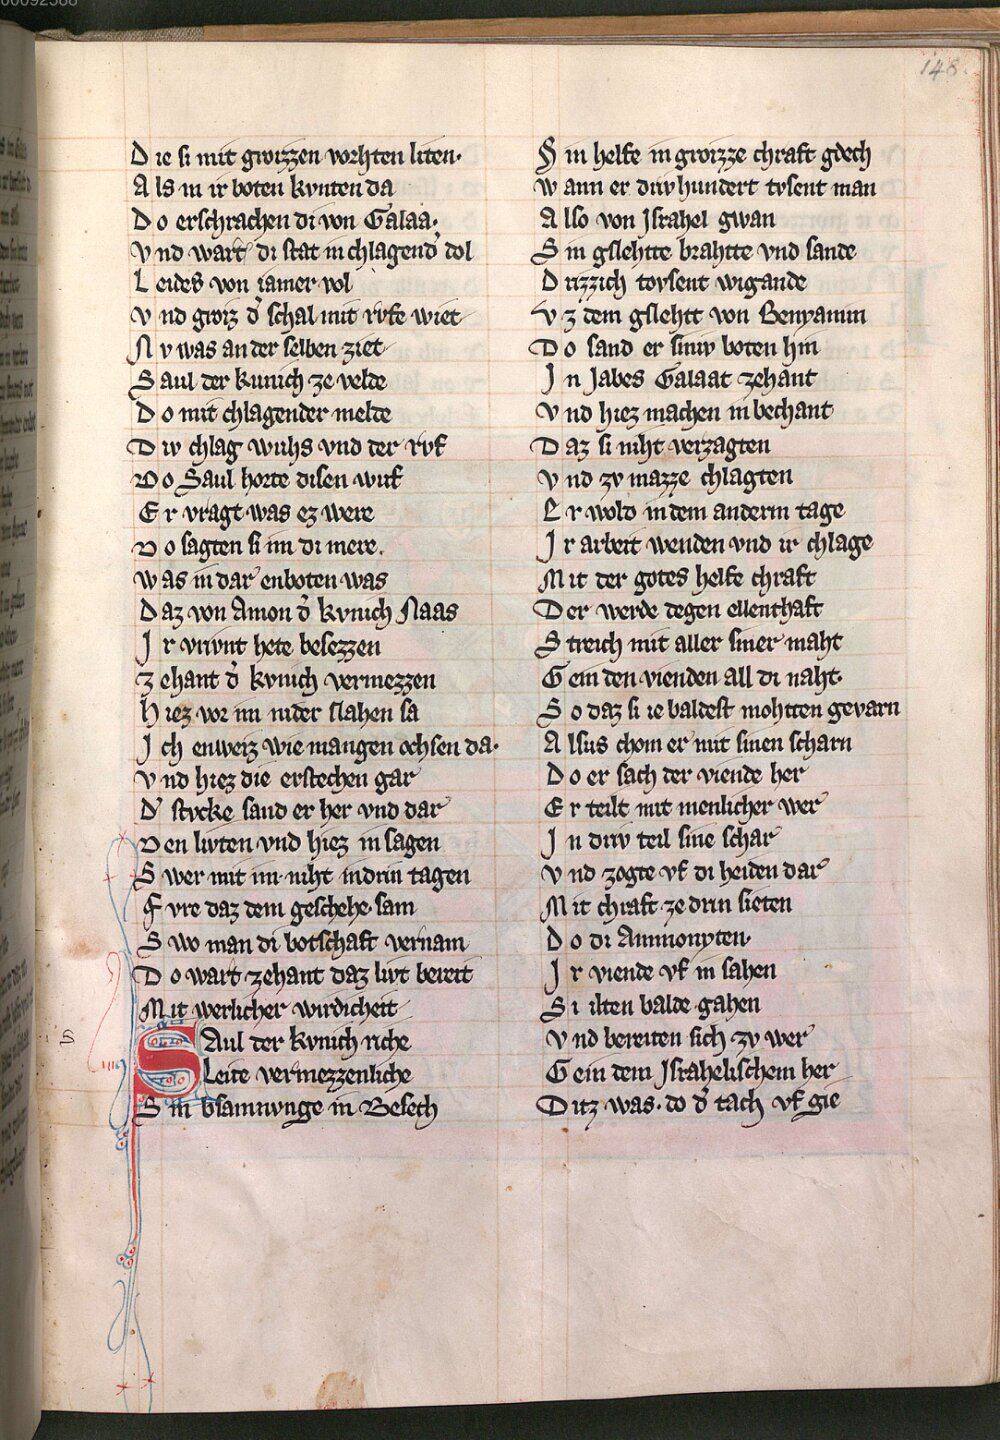 148.
Die si mit groizzen vorhten liten·
Als in ir boten kvnten da
Do erschrachen di von Galaa·
Vnd wart di stat in chlagend̾ dol
Leides von iamer vol
Vnd groiz d̾ schal mit rvfe wiet
Nv was an der selben ziet
Saul der kunich ze velde
Do mit chlagender melde
Div chlag wuhs vnd der rvf
Do Saul horte disen wuf
Er vragt was ez were
Do sagten si im di mere.
Was in dar enboten was
Daz von Amon d̾ kvnich Naas
Ir vrivnt hete besezzen
Zehant d̾ kvnich vermezzen
Hiez vor im nider slahen sa
Ich enweiz wie mangen ochsen da·
Vnd hiez die erstechen gar
D̾ stvcke sand er her vnd dar
Den livten vnd hiez in sagen
Swer mit im niht in drin tagen
Fvre daz dem geschehe sam
Swo man di botschaft vernam
Do wart zehant daz livt bereit
Mit werlicher wirdicheit
s
Saul der kvnich riche
Leite vermezzenliche
Sin bsamnvnge in Besech
Sin helfe in groizze chraft gdech
Wann er driv hundert tvsent man
Allso von Israhel gwan
Sin gslehtte brahtte vnd sande
Drizzich toysent wigande
Vz dem gslehtt von Benyamin
Do sand er siniv boten hin
In Jabes Galaat zehant
Vnd hiez machen in bechant
Daz si niht verzagten
Vnd zv mazze chlagten
Er wold in dem anderm tage
Ir arbeit wenden vnd ir chlage
Mit der gotes helfe chraft
Der werde degen ellenthaft
Streich mit aller siner maht
Gein den vienden all di naht·
So daz si ie baldest mohtten gevarn
Alsus chom er mit sinen scharn
Do er sach der viende her
Er teilt mit menlicher wer
In driv teil sine schar
Vnd zogte vf di heiden dar
Mit chraft ze drin sieten
Do di Ammonyten·
Ir viende vf in sahen
Si ilten balde gahen
Vnd bereiten sich zv wer
Gein dem Israhelischem her
Ditz was· do d̾ tach vf gie